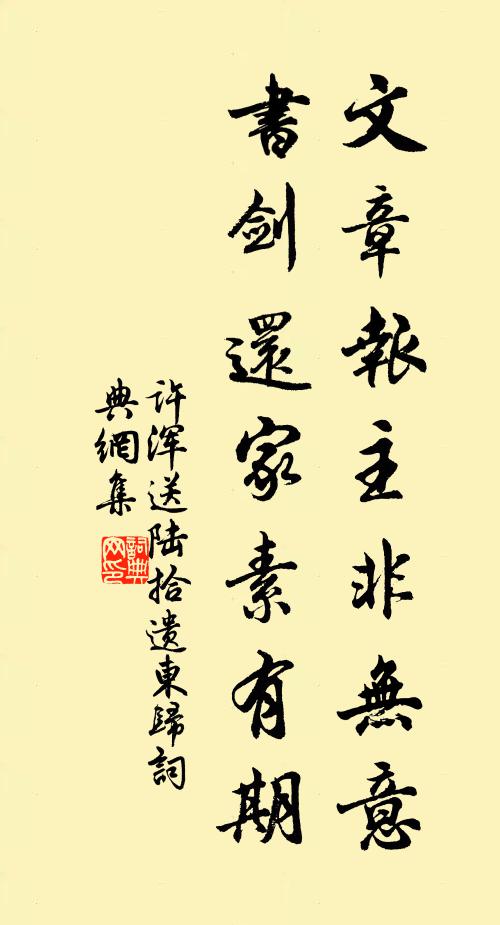 文章報主非無意
書剑還家素有期
许浑送陆拾遗東歸詞
典網集
詞典网印